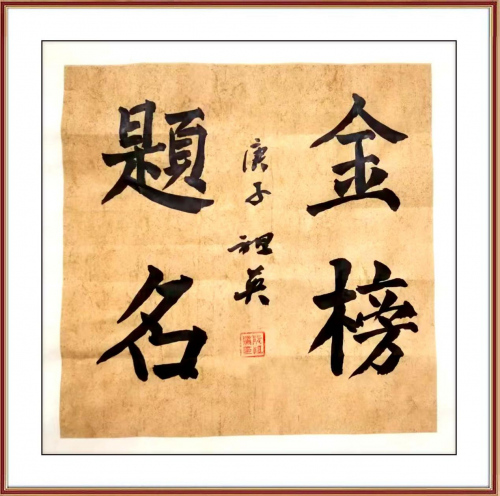 金榜
題名
庚子 祖英